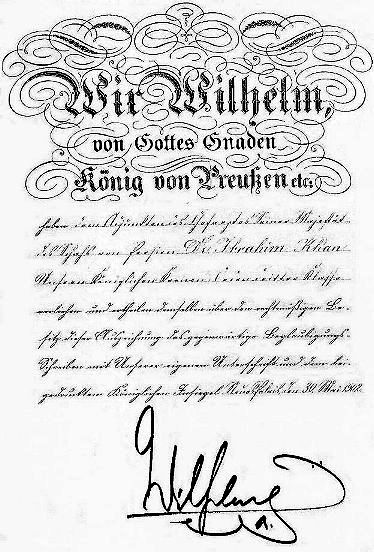 Wir Wilhelm,
von Gottes Gnaden
König von Preußen etc.
haben dem Adjunkten des Hofarztes Seiner Majestät
des Schahs von Persien Dr. Ibrahim Khan
Unseren Königlichen Kronen-Orden dritter Klasse
verliehen und ertheilen demselben über den rechtmäßigen Be-
sitz dieser Auszeichnung das gegenwärtige Beglaubigungs-
Schreiben mit Unserer eigenen Unterschrift und dem bei-
gedruckten Königlichen Insiegel. Neues Palais, den 30. Mai 1902.
Wilhelm
R.